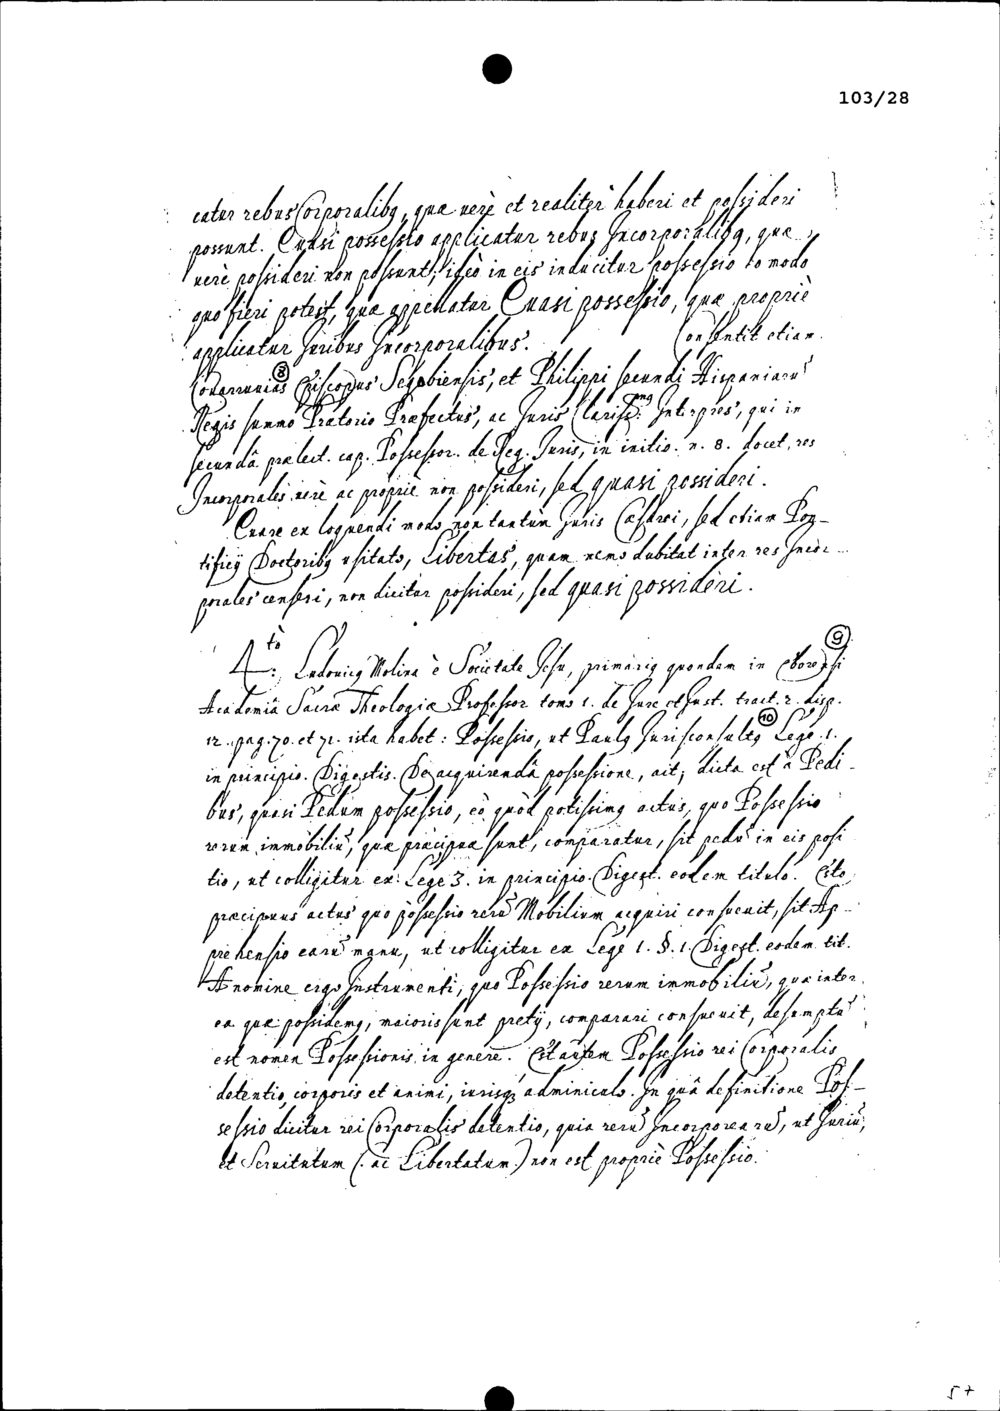 103/28
catur rebus Corporalibq, quæ verè et realiter haberi et possideri
possunt. Quasi possessio applicatur rebus Incorporalibq, quæ
verè possideri non possunt; ideò in eis inducitur possessio eo modo
quo fieri potest, quæ appellatur Quasi possessio, quæ propriè
applicatur Juribus Incorporalibus. Consentit etiam
8
Covarruvias Episcopus Segobiensis, et Philippi secundi Hispaniarũ
Regis summo Prætorio Præfectus, ac Juris Clarissimq Interpres, qui in
secundâ prælect. cap. Possessor. de Reg. Juris, in initio. n. 8. docet, res
Incorporales verè ac propriè non possideri, sed quasi possideri.
Quare ex loquendi modo non tantùm Juris Cæsarei, sed etiam Pon-
tificij Doctoribq usitato, Libertas, quam nemo dubitat inter res Incor-
porales censeri, non dicitur possideri, sed quasi possideri.
9
4tò: Ludovicq Molina è Societate Jesu, primariq quondam in Eborensi
Academiâ Sacræ Theologiæ Professor tomo 1. de Jure et Just. tract. 2. disp.
10
12. pag. 70. et 71. ita habet: Possessio, ut Paulq Jurisconsultq Lege. 1.
in principio. Digestis. De acquirendâ possessione, ait, dicta est à Pedi-
bus, quasi Pedum possessio, eò quòd potissimq actus, quo Possessio
rerum immobiliũ, quæ præcipuæ sunt, comparatur, sit pedũ in eis posi
tio, ut colligitur ex Lege 3. in principio. Digest. eodem titulo. Esto
præcipuus actus quo possessio rerũ Mobilium acquiri consuevit, sit Ap-
prehensio earũ manu, ut colligitur ex Lege 1. §. 1. Digest. eodem tit.
A nomine ergo Instrumenti, quo Possessio rerum immobiliũ, quæ inter
ea quæ possidemq, maioris sunt pretij, comparari consuevit, desumptũ
est nomen Possessionis in genere. Est autem Possessio rei Corporalis
detentio, corporis et animi, iurisq; adminiculo. In quâ definitione Pos-
sessio dicitur rei Corporalis detentio, quia rerũ Incorporearũ, ut Juriũ,
et Servitutum (: ac Libertatum:) non est propriè Possessio.
57